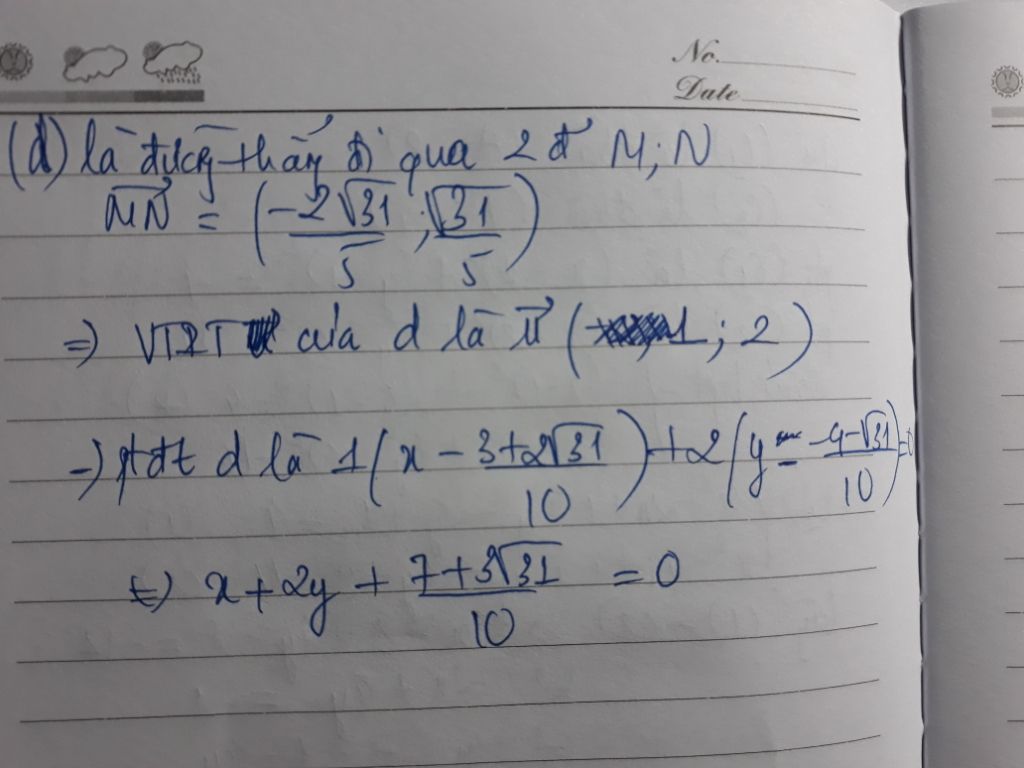 No.
Date
(d) là đường thẳng đi qua 2 đ' M; N
$\overrightarrow{MN} = \left(\frac{-2\sqrt{31}}{5}; \frac{\sqrt{31}}{5}\right)$
=) VTPT của d là $\vec{u}$ (1; 2)
=) ptđt d là $1\left(x - \frac{3+2\sqrt{31}}{10}\right) + 2\left(y - \frac{-4-\sqrt{31}}{10}\right) = 0$
(=) $x + 2y + \frac{7+3\sqrt{31}}{10} = 0$